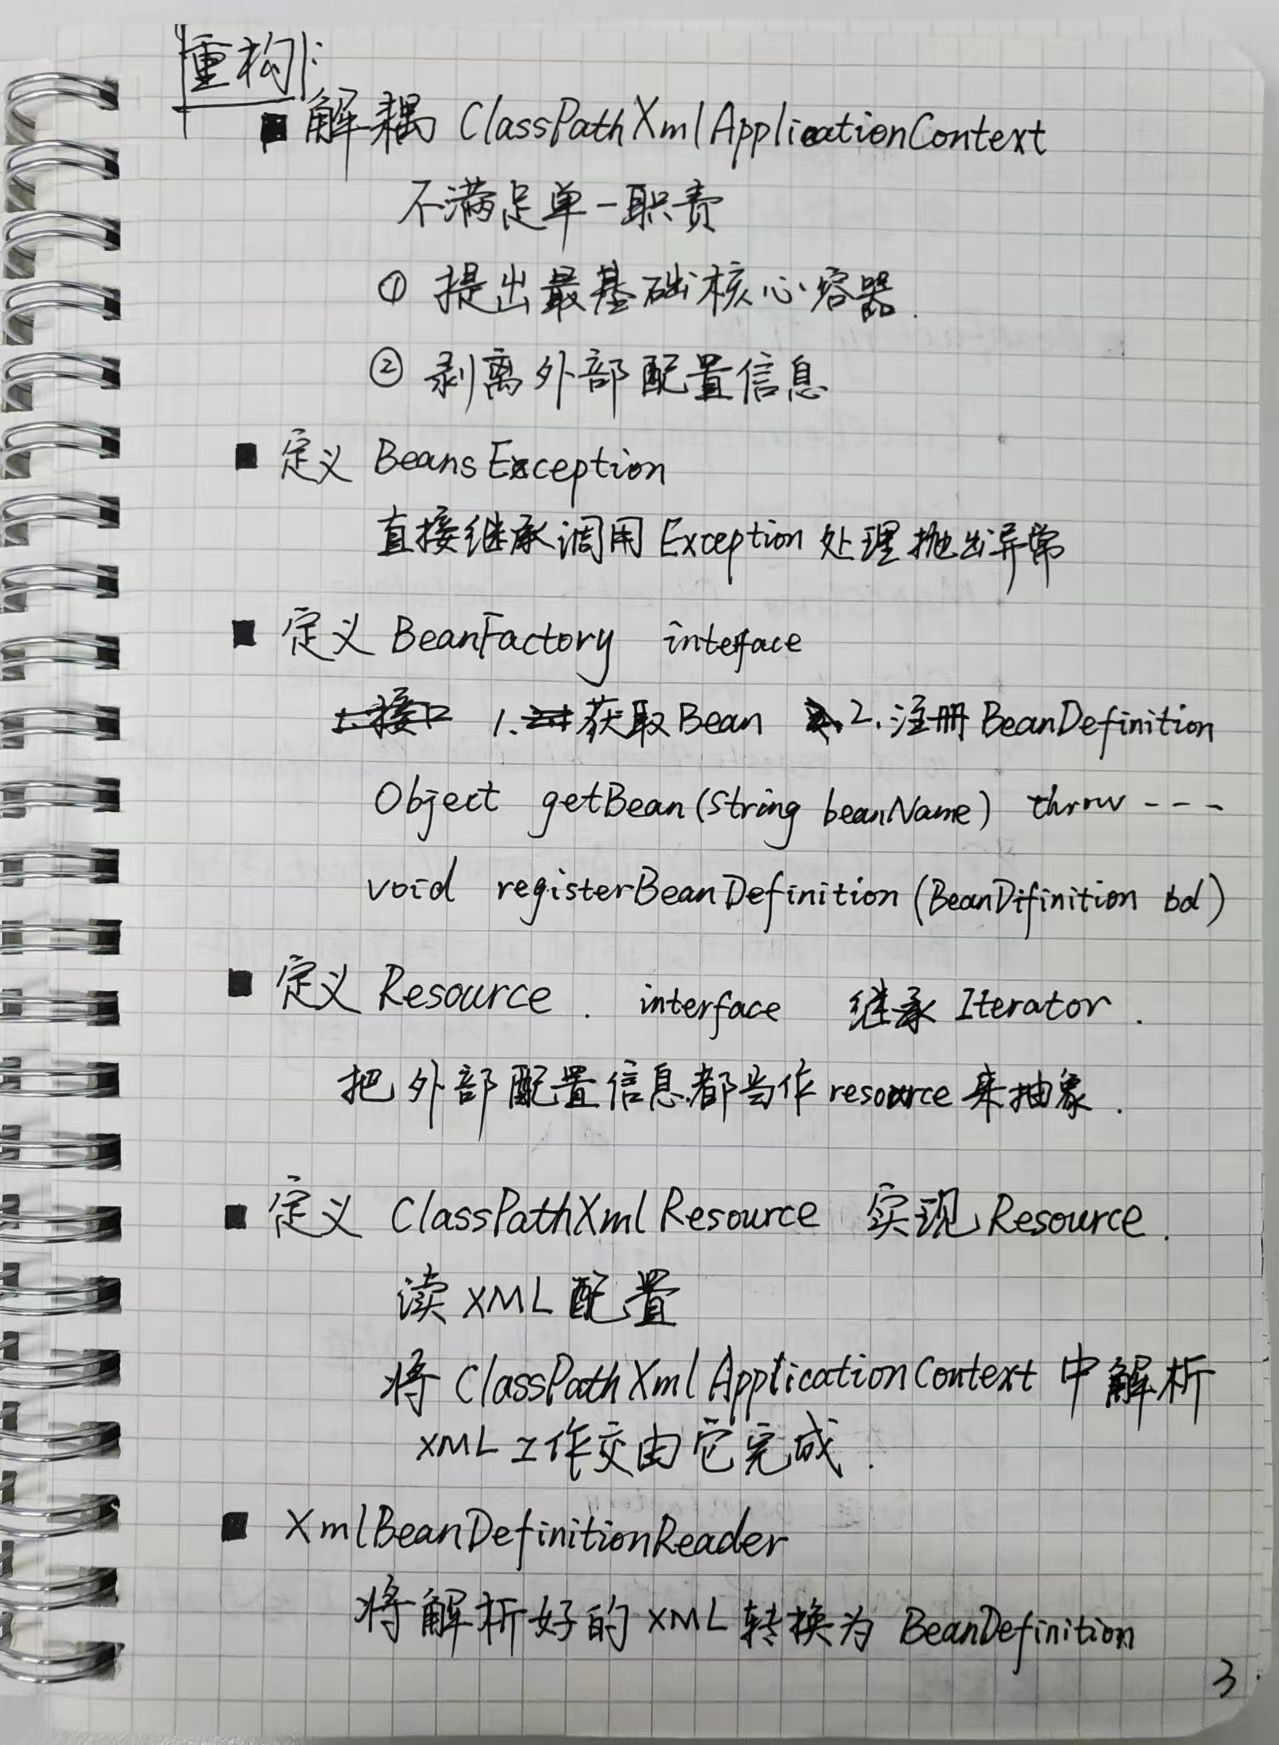 重构:
■ 解耦 ClassPathXmlApplicationContext
不满足单一职责
① 提出最基础核心容器.
② 剥离外部配置信息
■ 定义 BeansException
直接继承调用 Exception 处理抛出异常
■ 定义 BeanFactory interface
1. 接口 1. 获取Bean 2. 注册 BeanDefinition
Object getBean(String beanName) throw ---
void registerBeanDefinition (BeanDifinition bd)
■ 定义 Resource . interface 继承 Iterator .
把外部配置信息都当作 resource 来抽象 .
■ 定义 ClassPathXmlResource 实现 Resource .
读 XML 配置
将 ClassPathXmlApplicationContext 中解析
XML 工作交由它完成 .
■ XmlBeanDefinitionReader
将解析好的 XML 转换为 BeanDefinition
3